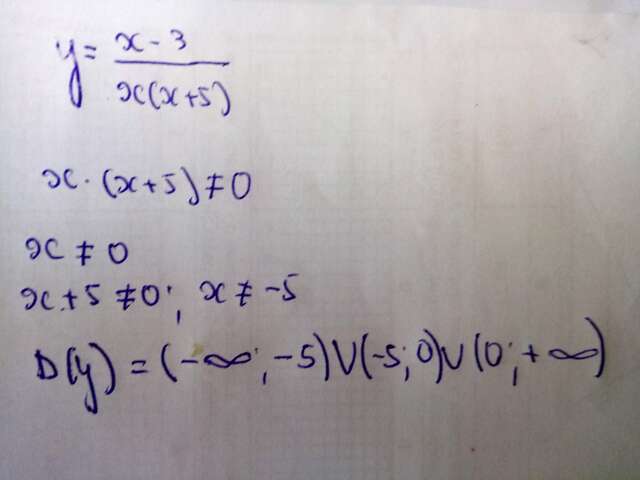 y = x - 3 / x(x+5)
x · (x+5) ≠ 0
x ≠ 0
x + 5 ≠ 0; x ≠ -5
D(y) = (-∞; -5) ∪ (-5; 0) ∪ (0; +∞)